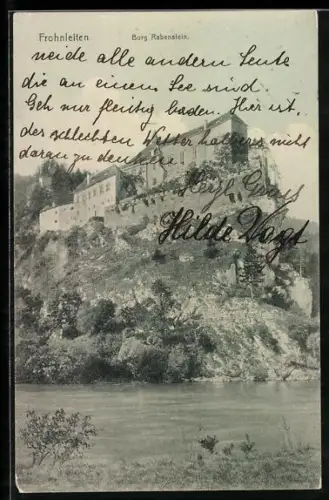 Frohnleiten Burg Rabenstein.
neide alle andern Leute
die an einem See sind.
Geh nur fleißig baden. Hier ist
des schlechten Wetter halbers nicht
daran zu denken.
Herzl. Gruss
Hilde Vogt